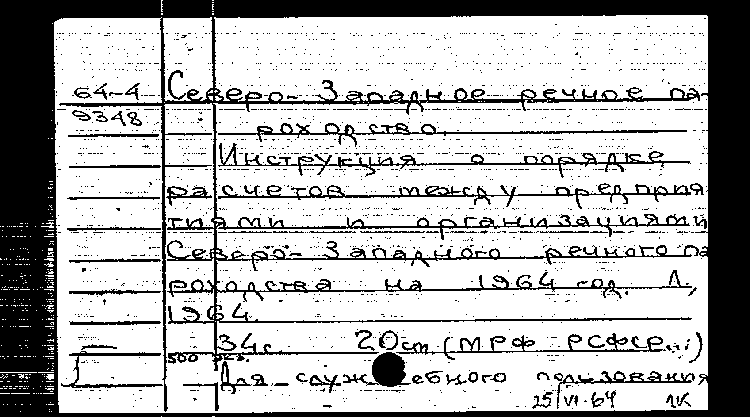 64-4 Северо-Западное речное па-
9348
роходство.
Инструкция о порядке
расчетов между предприя
тиями и организациями
Северо-Западного речного па
роходства на 1964 год. Л.,
1964.
34с. 20см (МРФ РСФСР...)
500 экз.
Для служебного пользования
25/VI-64 ЛК